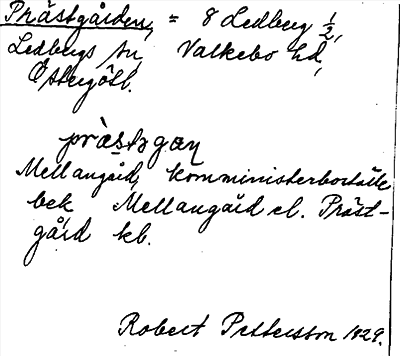 Prästgården, = 8 Ledberg 1/2,
Ledbergs sn, Valkebo hd,
Östergötl.
prȧstgɑn
Mellangård, komministerboställe
bek Mellangård el. Präst-
gård kb.
Robert Pettersson 1929.